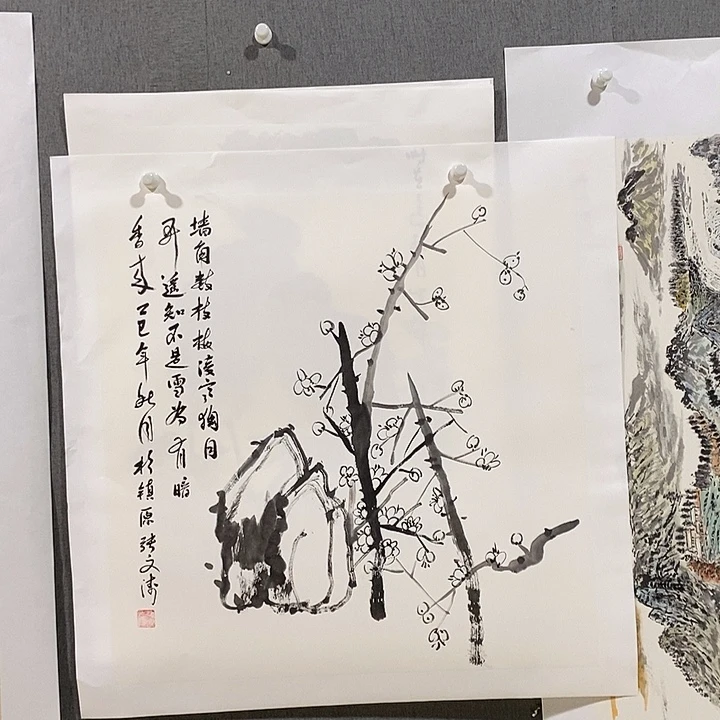 墙角数枝梅凌寒独自
开遥知不是雪为有暗
香来乙巳年秋月于镇原张文涛